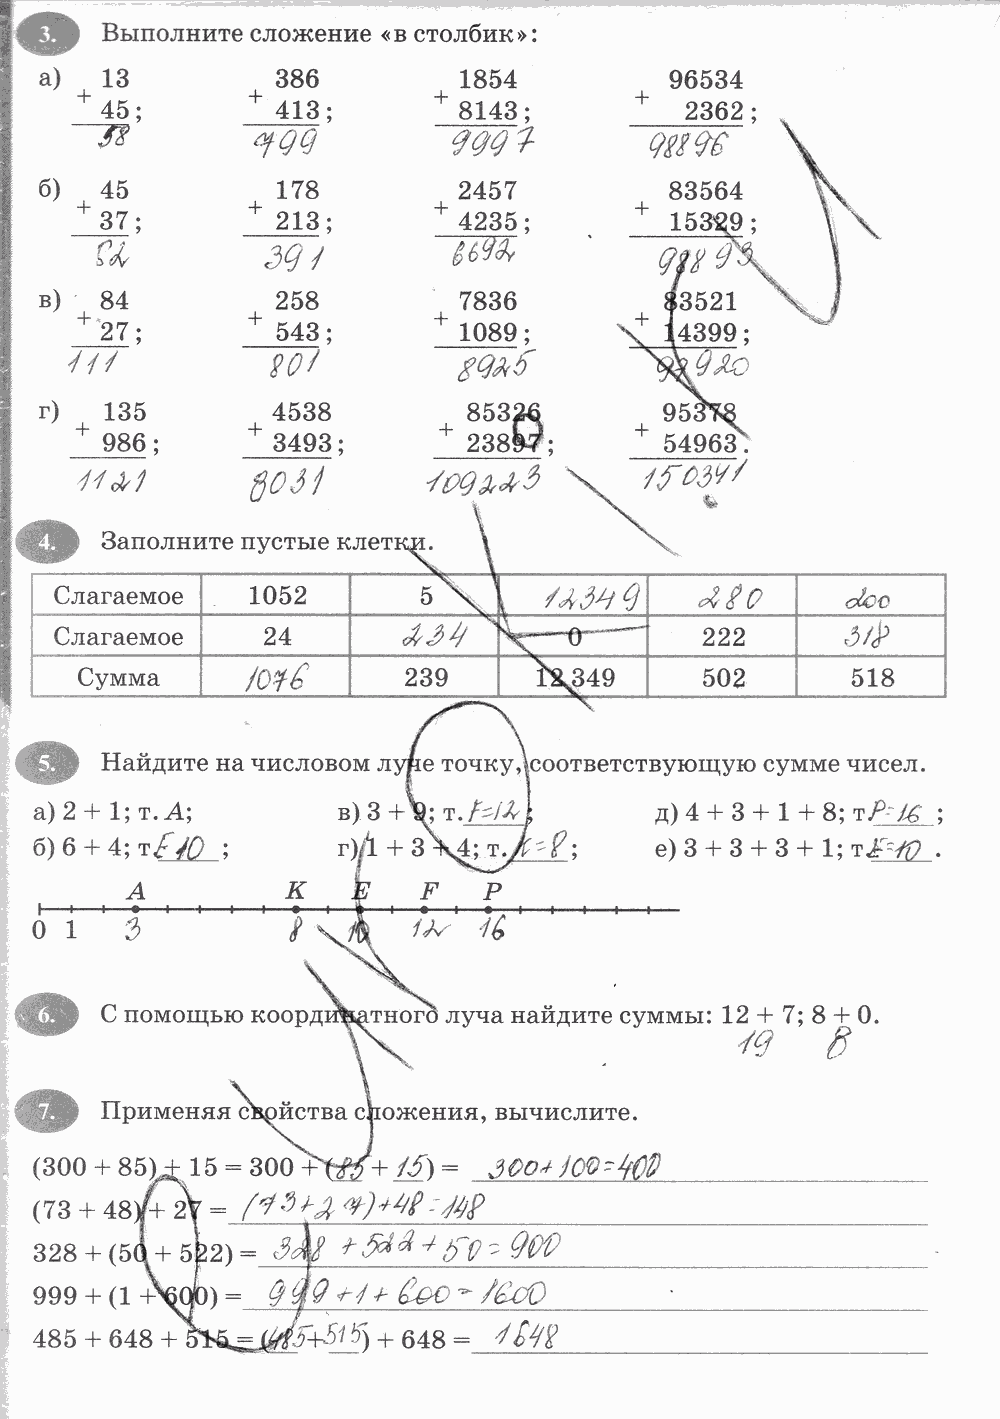 3. Выполните сложение «в столбик»:
а) 13 386 1854 96534
+ 45; + 413; + 8143; + 2362;
58 799 9997 98896
б) 45 178 2457 83564
+ 37; + 213; + 4235; + 15329;
82 391 6692 98893
в) 84 258 7836 83521
+ 27; + 543; + 1089; + 14399;
111 801 8925 97920
г) 135 4538 85326 95378
+ 986; + 3493; + 23897; + 54963.
1121 8031 109223 150341
4. Заполните пустые клетки.
Слагаемое 1052 5 12349 280 200
Слагаемое 24 234 0 222 318
Сумма 1076 239 12 349 502 518
5. Найдите на числовом луче точку, соответствующую сумме чисел.
а) 2 + 1; т. A; в) 3 + 9; т. F=12; д) 4 + 3 + 1 + 8; т. P=16;
б) 6 + 4; т. E 10; г) 1 + 3 + 4; т. K=8; е) 3 + 3 + 3 + 1; т. E=10.
A K E F P
0 1 3 8 10 12 16
6. С помощью координатного луча найдите суммы: 12 + 7; 8 + 0.
19 8
7. Применяя свойства сложения, вычислите.
(300 + 85) + 15 = 300 + (85 + 15) = 300+100=400
(73 + 48) + 27 = (73+27)+48=148
328 + (50 + 522) = 328 +522+50=900
999 + (1 + 600) = 999+1+600=1600
485 + 648 + 515 = (485+515) + 648 = 1648